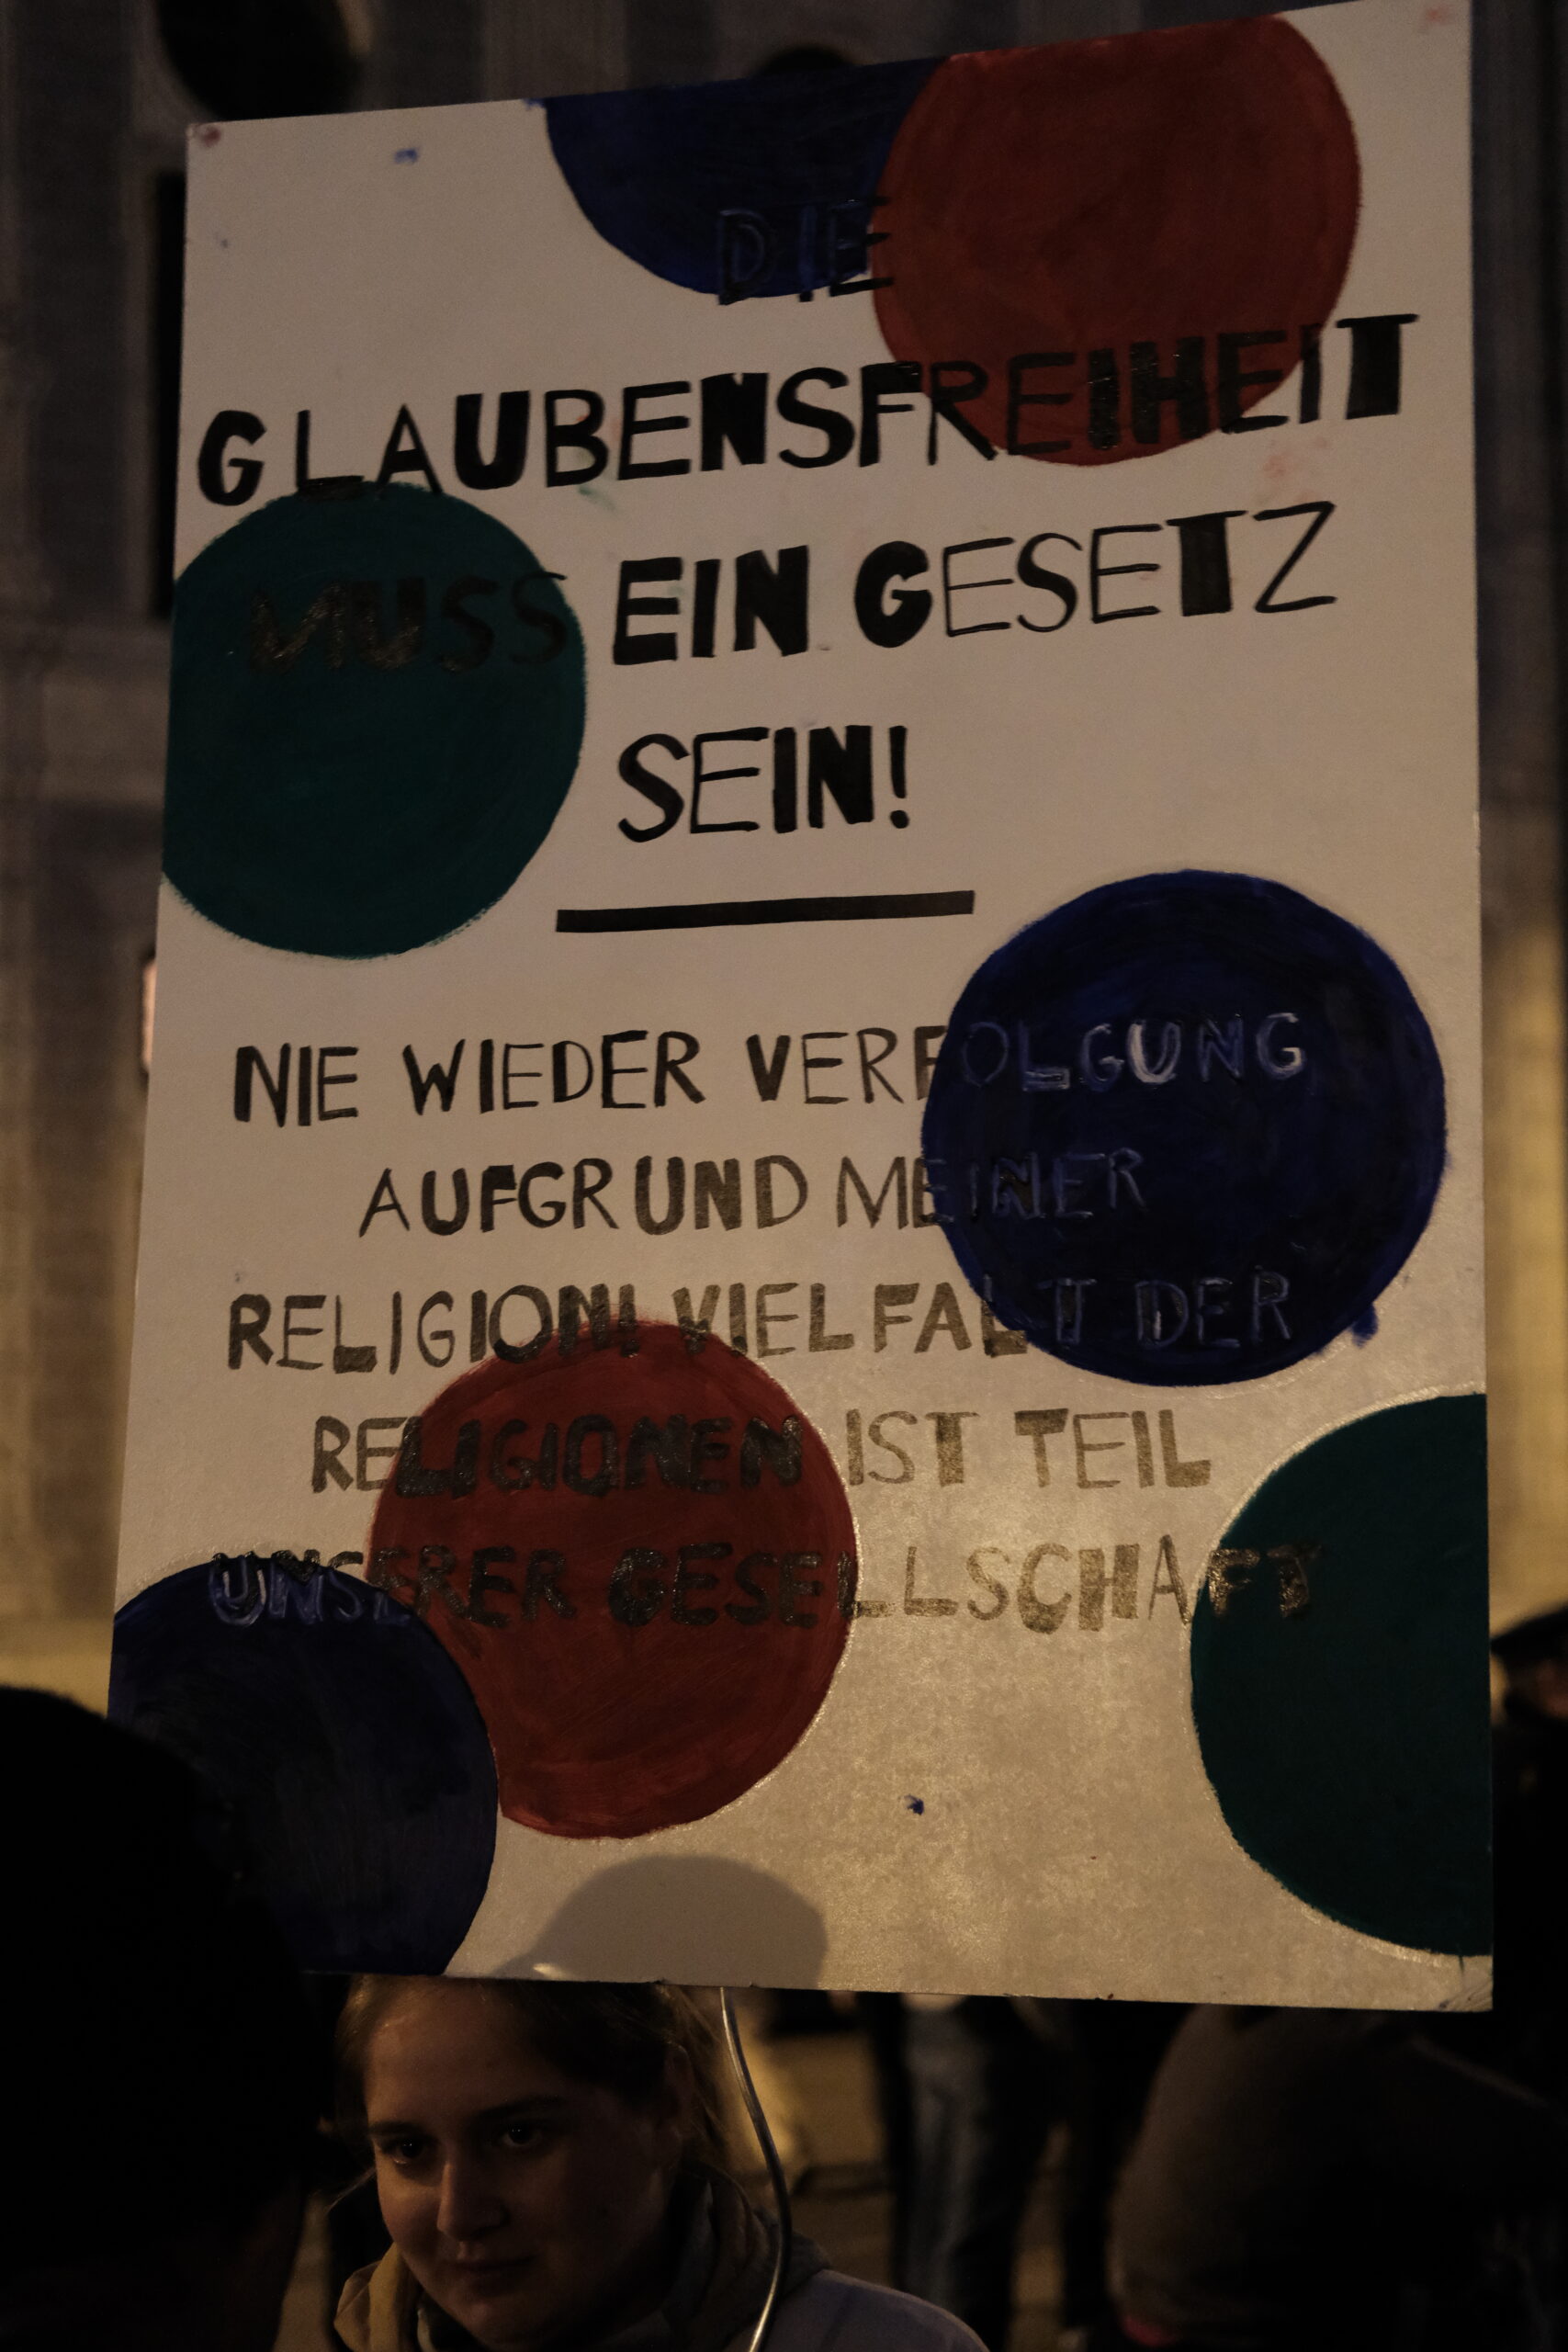 DIE
GLAUBENSFREIHEIT
MUSS EIN GESETZ
SEIN!
NIE WIEDER VERFOLGUNG
AUFGRUND MEINER
RELIGION! VIELFALT DER
RELIGIONEN IST TEIL
UNSERER GESELLSCHAFT